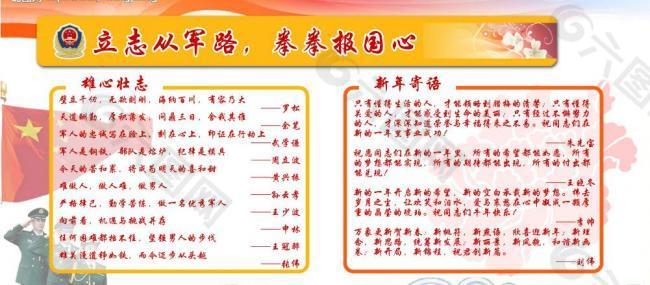 立志从军路，拳拳报国心
雄心壮志
壁立千仞，无欲则刚，海纳百川，有容乃大
——罗松
天道酬勤，厚积薄发，问鼎三日，舍我其谁
——余笔
军人的忠诚写在脸上，刻在心上，印证在行动上
——武学谦
军人是钢铁，部队是熔炉，纪律是模具
——周立波
今天的苦和累，将成为明天的喜和甜
——黄兴栋
难做人，做人难，做男人
——孙云孝
严格律己，勤学苦练，做一名优秀军人
——王少波
向前看，机遇与挑战并存
——申林
任何困难都挡不住，坚强男人的步伐
——王冠醉
雄关漫道铮如铁，而今迈步从头越
——张伟
新年寄语
只有懂得生活的人，才能领略到腊梅的清馨，只有懂得
关爱的人，才能感受到生命的美丽，只有经过不懈努力
的人，才深深知道荣誉与幸福得来之不易。祝同志们在
新的一年里事业成功！
——朱先宝
祝愿同志们在新的一年里，所有的希望都能如愿，所有
的梦想都能实现，所有的期待都能出现，所有的付出都
能兑现！
——王晓冬
新的一年开启新的希望，新的空白承载新的梦想。拂去
岁月之尘，让欢笑和泪水、爱与哀愁在心中凝成一颗厚
重的晶莹的琥珀。祝同志们牛年快乐！
——李帅
万象更新贺新春：新桃符，新燕语；欣喜迎新年：新理
念，新思路；统筹新发展：新丽景，新风貌，和谐新画
卷：新开局，新锦程，祝君创新篇。
——刘伟